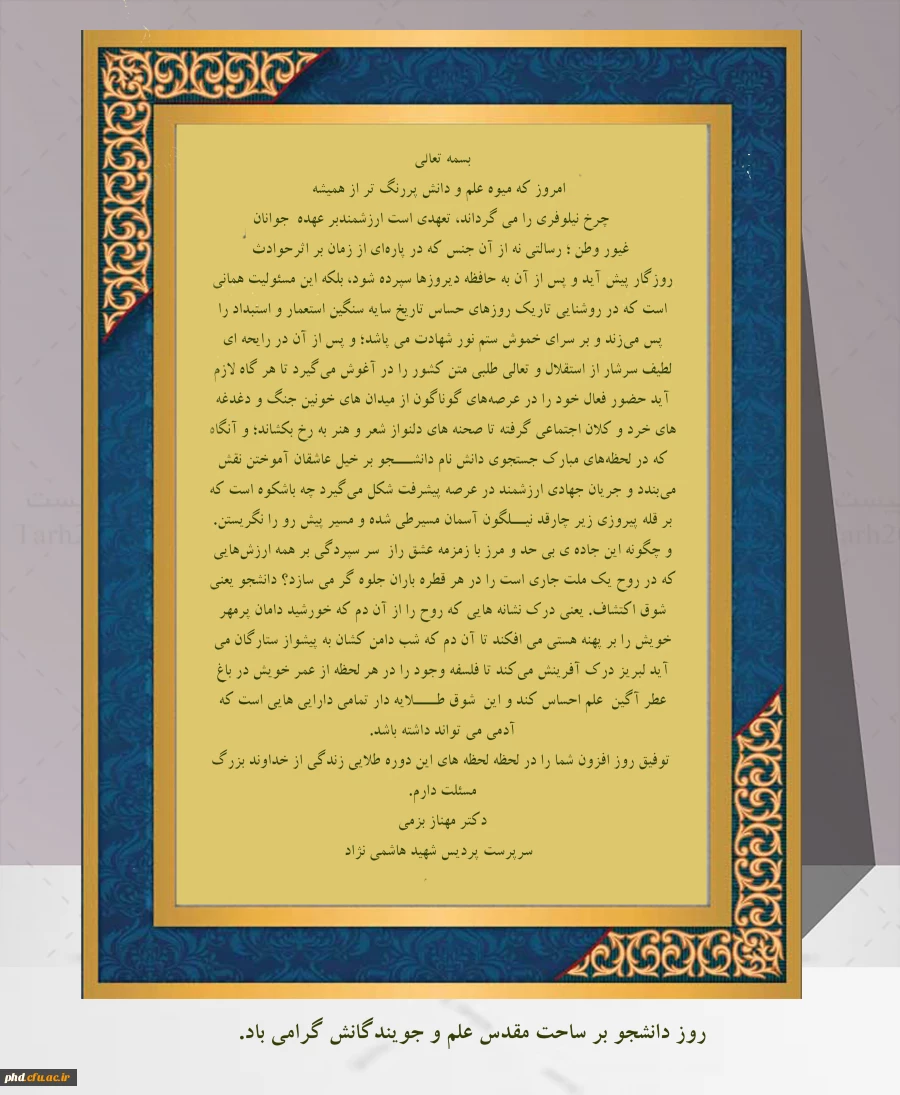 بسمه تعالی
امروز که میوه علم و دانش پررنگ تر از همیشه
چرخ نیلوفری را می گرداند، تعهدی است ارزشمندبر عهده جوانان
غیور وطن ؛ رسالتی نه از آن جنس که در پاره‌ای از زمان بر اثرحوادث
روزگار پیش آید و پس از آن به حافظه دیروزها سپرده شود، بلکه این مسئولیت همانی
است که در روشنایی تاریک روزهای حساس تاریخ سایه سنگین استعمار و استبداد را
پس می‌زند و بر سرای خموش ستم نور شهادت می پاشد؛ و پس از آن در رایحه ای
لطیف سرشار از استقلال و تعالی طلبی متن کشور را در آغوش می‌گیرد تا هر گاه لازم
آید حضور فعال خود را در عرصه‌های گوناگون از میدان های خونین جنگ و دغدغه
های خرد و کلان اجتماعی گرفته تا صحنه های دلنواز شعر و هنر به رخ بکشاند؛ و آنگاه
که در لحظه‌های مبارک جستجوی دانش نام دانشـــجو بر خیل عاشقان آموختن نقش
می‌بندد و جریان جهادی ارزشمند در عرصه پیشرفت شکل می‌گیرد چه باشکوه است که
بر قله پیروزی زیر چارقد نیـــلگون آسمان مسیرطی شده و مسیر پیش رو را نگریستن.
و چگونه این جاده ی بی حد و مرز با زمزمه عشق راز سر سپردگی بر همه ارزش‌هایی
که در روح یک ملت جاری است را در هر قطره باران جلوه گر می سازد؟ دانشجو یعنی
شوق اکتشاف. یعنی درک نشانه هایی که روح را از آن دم که خورشید دامان پرمهر
خویش را بر پهنه هستی می افکند تا آن دم که شب دامن کشان به پیشواز ستارگان می
آید لبریز درک آفرینش می‌کند تا فلسفه وجود را در هر لحظه از عمر خویش در باغ
عطر آگین علم احساس کند و این شوق طـــلایه دار تمامی دارایی هایی است که
آدمی می تواند داشته باشد.
توفیق روز افزون شما را در لحظه لحظه های این دوره طلایی زندگی از خداوند بزرگ
مسئلت دارم.
دکتر مهناز بزمی
سرپرست پردیس شهید هاشمی نژاد
روز دانشجو بر ساحت مقدس علم و جویندگانش گرامی باد.
phd.cfu.ac.ir